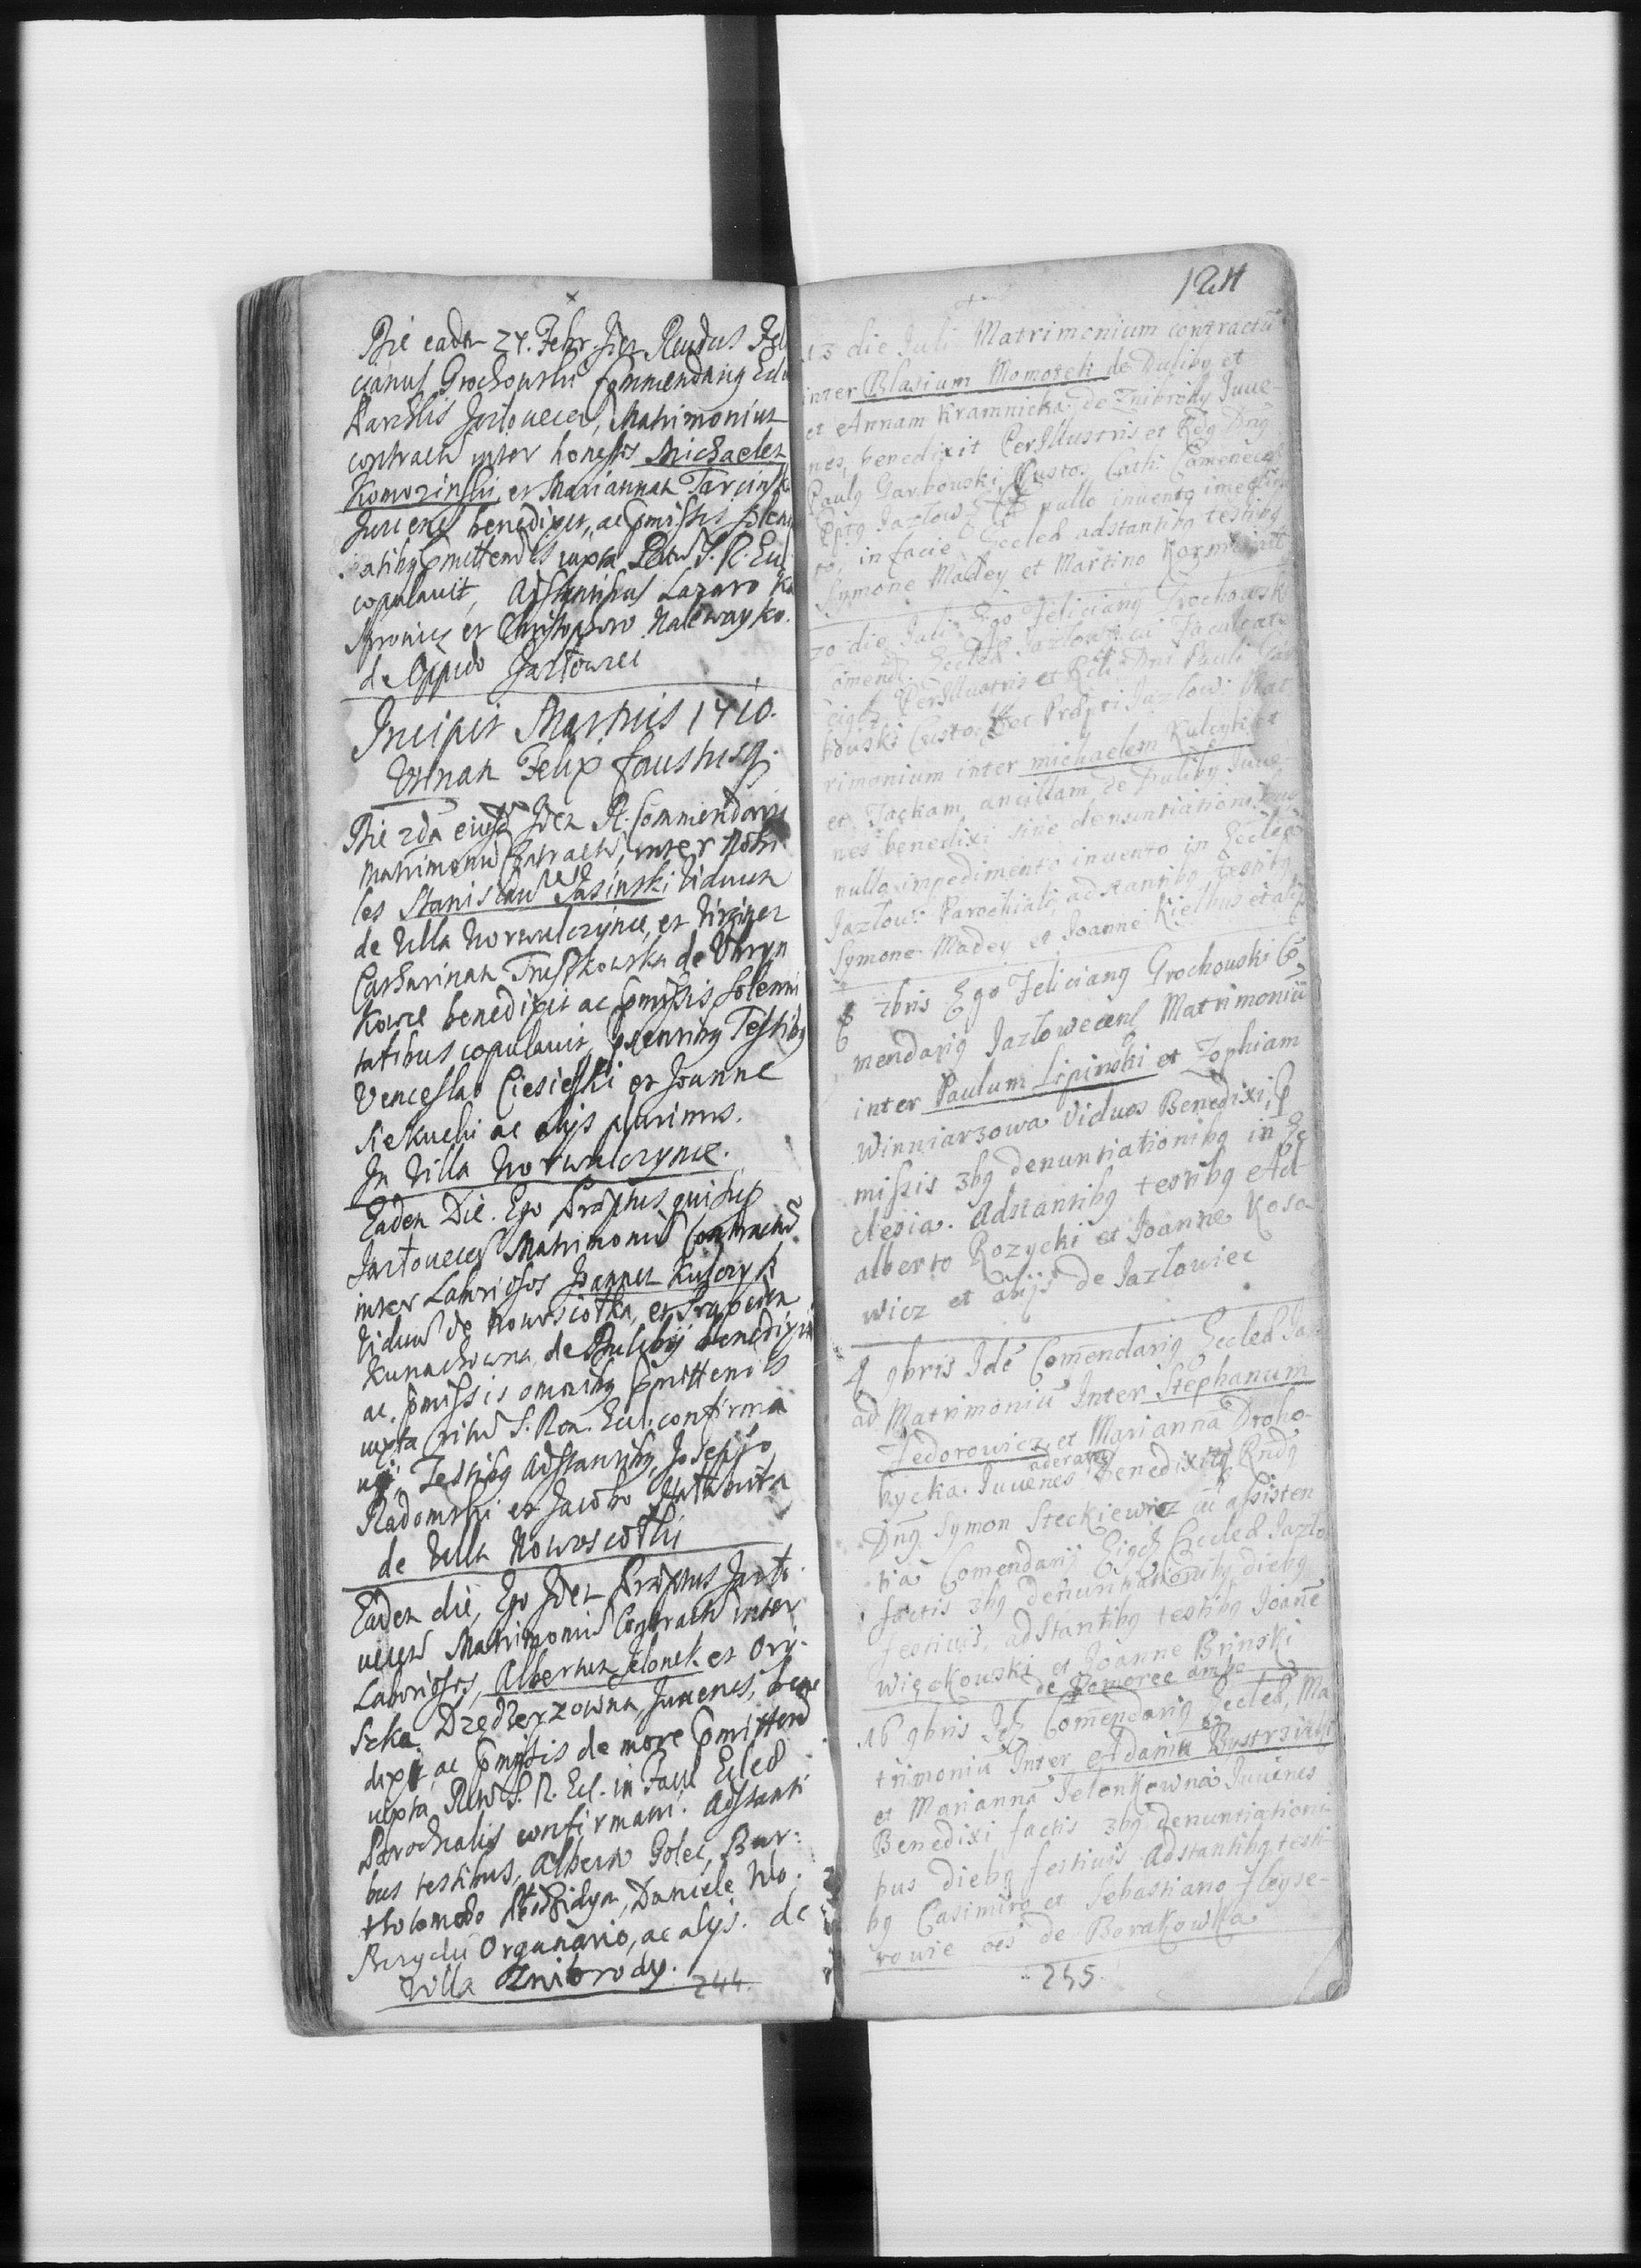 Die eadm 27. Febr. Idem Rendus Feli
cianus Grochowski Commendarig Eccl
Parchlis Jazlovecen, Matrimonium
contractu inter honestos Michaelem
Komozinski, et Mariannam Tarcinsk
Juvenes benedixit, ac pmissis solen
copulavit, Astantibus Lazaro
et Christophoro Nalewayko.
de Oppido Jazlowiec
Incipit Martius 1710.
Utinam Felix faustusq.
Die 2da eiusd Idem R. Commendarig
Matrimoniu contractu, inter Nobi
les Stanislau Jasinski Viduum
de Villa Norwulczynce, et Virginem
Catharinam Truszkowska de Uhryn
kowce benedixit ac pmissis solenni
tatibus copulavit, psentibg Testibg
Venceslao Ciesielski et Joanne
Siekucki ac alijs plurimis.
In Villa Norwulczynce.
Eadem Die. Ego Prapstus qui sup
Jazlovecen Matrimoniu Contractu
inter Laboriosos Joannem Kulczyk
Viduu de Nowosiotka, et
Kunachowna, de Duliby benedixi
ac pmissis omnibg pmittendis
iuxta ritu S. Rom. Eccl. confirma
vi. Testibg Adstantibg, Josepho
Radomski et Jacobo
de Villa Nowosiotki
Eadem die, Ego Idem Prapstus Jazlo
vecen Matrimoniu Contractu inter
Laboriosos, Albertum Jelonek et Ory
szka Dzedzerzowna, Juvenes, bene
dixi, ac pmissis de more pmittend
iuxta Ritu S. R. Ecl. in Facie Ecles
Parochialis confirmavi. Adstanti
bus testibus, Alberto Golec, Bar:
tholomeo, Daniele Wo
Organario, ac alijs. de
Villa Znibrody.
244.
124
13 die Juli Matrimonium contractu
inter Blasium Momotek de Duliby et
et Annam Kramnicka de Znibrody Juve-
nes, benedixit PerIllustris et Rdg Dng
Paulg Garbowski Custos Cath: Camenecen
Pptg Jazlow: nullo invento impedim
to, in facie Eccles adstantibg testibg
Symone Madey et Martino
20 die Juli Ego Feliciang Grochowski
Comend: Eccles Jazlow: cu Facultate
eigd PerIllustris et Rdi Dni Pauli Gar
bowski Custo: et Prapti Jazlow: Mat
rimonium inter michaelem Kulcyki et
et Jackam ancillam de Duliby Juve-
nes benedixi sine denuntiationibus
nullo impedimento invento in Eccles
Jazlow: Parochiali, adstantibg testibg
Symone Madey et Joanne Kielbus et alijs
6 7bris Ego Feliciang Grochouski Co
mendarig Jazlowecens Matrimoniu
inter Paulum Lipinski et Zophiam
Winniarzowa Viduos Benedixi, p
missis 3bg denuntiationibg in Ec
clesia. Adstantibg testibg Ad
alberto Rozycki et Joanne Koso
wicz et alijs de Jazlowiec
4 9bris Ide Comendarig Eccles Jaz
ad Matrimoniu Inter Stephanum
Fedorowicz et Marianna Droho-
bycka Juvenes Benedixit Rndg
Dng Symon Steckiewicz in assisten
tia Comendarij Eigd Eccles Jazlo
factis 3bg denuntiationibg diebg
festivis, adstantibg testibg Joane
Więckowski et Joanne Brinski
de Pomorce ambo
16 9bris Ide Comendarig Eccles, Ma
trimoniu Inter Adamu Bystrzicki
et Marianna Jelonkowna Juvenes
Benedixi factis 3bg denuntiationi
bus diebg festivis Adstantibg testi-
bg Casimiro et Sebastiano Floyse-
rowie oes de Borakowka
245.